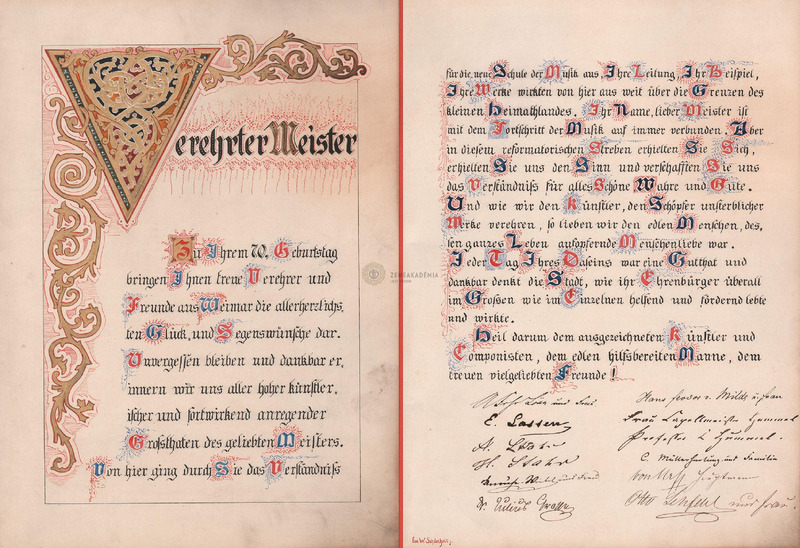 Verehrter Meister
Zu Ihrem 70. Geburtstag
bringen Ihnen treue Verehrer und
Freunde aus Weimar die allerherzlichs,
ten Glück, und Segenswünsche dar.
Unvergessen bleiben und dankbar er,
innern wir uns aller hoher künstler,
ischer und fortwirkend anregender
Großthaten des geliebten Meisters.
Von hier ging durch Sie das Verständniß
für die neue Schule der Musik aus, Ihre Leitung, Ihr Beispiel,
Ihre Werke wirkten von hier aus weit über die Grenzen des
kleinen Heimathlandes. Ihr Name, lieber Meister ist
mit dem Fortschritt der Musik auf immer verbunden. Aber
in diesem reformatorischen Streben erhielten Sie Sich,
erhielten Sie uns den Sinn und verschafften Sie uns
das Verständniß für alles Schöne Wahre und Gute.
Und wie wir den Künstler, den Schöpfer unsterblicher
Werke verehren, so lieben wir den edlen Menschen, des,
sen ganzes Leben aufopfernde Menschenliebe war.
Jeder Tag Ihres Daseins war eine Gutthat und
dankbar denkt die Stadt, wie ihr Ehrenbürger überall
im Großen wie im Einzelnen helfend und fördernd lebte
und wirkte.
Heil darum dem ausgezeichneten Künstler und
Componisten, dem edlen hilfsbereiten Manne, dem
treuen vielgeliebten Freunde!
und Frau
Hans v. Milde u. Frau
E. Lassen
Frau Capellmeister Hummel
Professor C Hummel.
H. Stahr
C. Müllerhartung und Familie
Dr
Otto und Frau.
ZENEAKADÉMIA